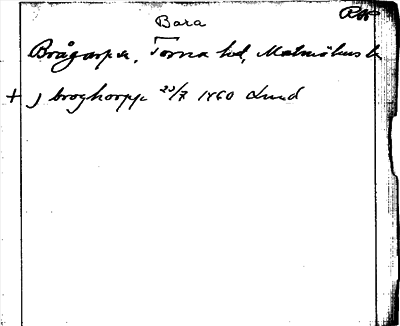 Bara
Brågarp sn, Torna hd, Malmöhus l.
+ j broghorppe 23/7 1460 Lund